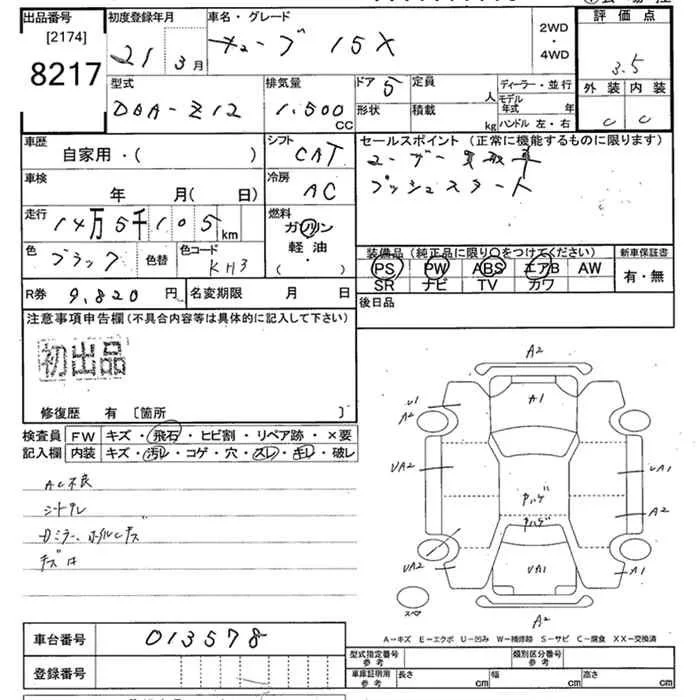 出品番号 初度登録年月 車名・グレード 評価点
[2174] 21年 3月 キューブ 15X 2WD・4WD 3.5
8217 型式 排気量 ドア 5 定員 人 ディーラー・並行 外装 内装
DBA-Z12 1.500 CC 形状 積載 kg モデル年式 年 ハンドル 左・右 C C
車歴 シフト セールスポイント (正常に機能するものに限ります)
自家用・( ) CAT ユーザー買取車
車検 冷房 プッシュスタート
年 月( 日) AC
走行 14万5千105km 燃料
ガソリン
軽油
( ・ )
色 ブラック 色替 色コード KH3
装備品 (純正品に限り○をつけてください) 新車保証書
PS PW ABS エアB AW 有・無
SR ナビ TV カワ
R券 9,820円 名変期限 月 日 後日品
注意事項申告欄 (不具合内容等は具体的に記入して下さい)
初出品
修復歴 有 [箇所 ]
検査員 FW キズ・飛石・ヒビ割・リペア跡・×要
記入欄 内装 キズ・汚レ・コゲ・穴・スレ・キレ・破レ
AC不良
シートスレ
Dミラー、ホイルキズ
A2
U1
A2
A1
UA2
UA1
Pハゲ
A2
Pハゲ
UA2
UA1
A1
スペア
A2
A-キズ E-エクボ U-凹み W-補修跡 S-サビ C-腐食 XX-交換済
車台番号 013578
登録番号
型式指定番号 参考 類別区分番号 参考
車庫証明用 参考 長さ cm 幅 cm 高さ cm